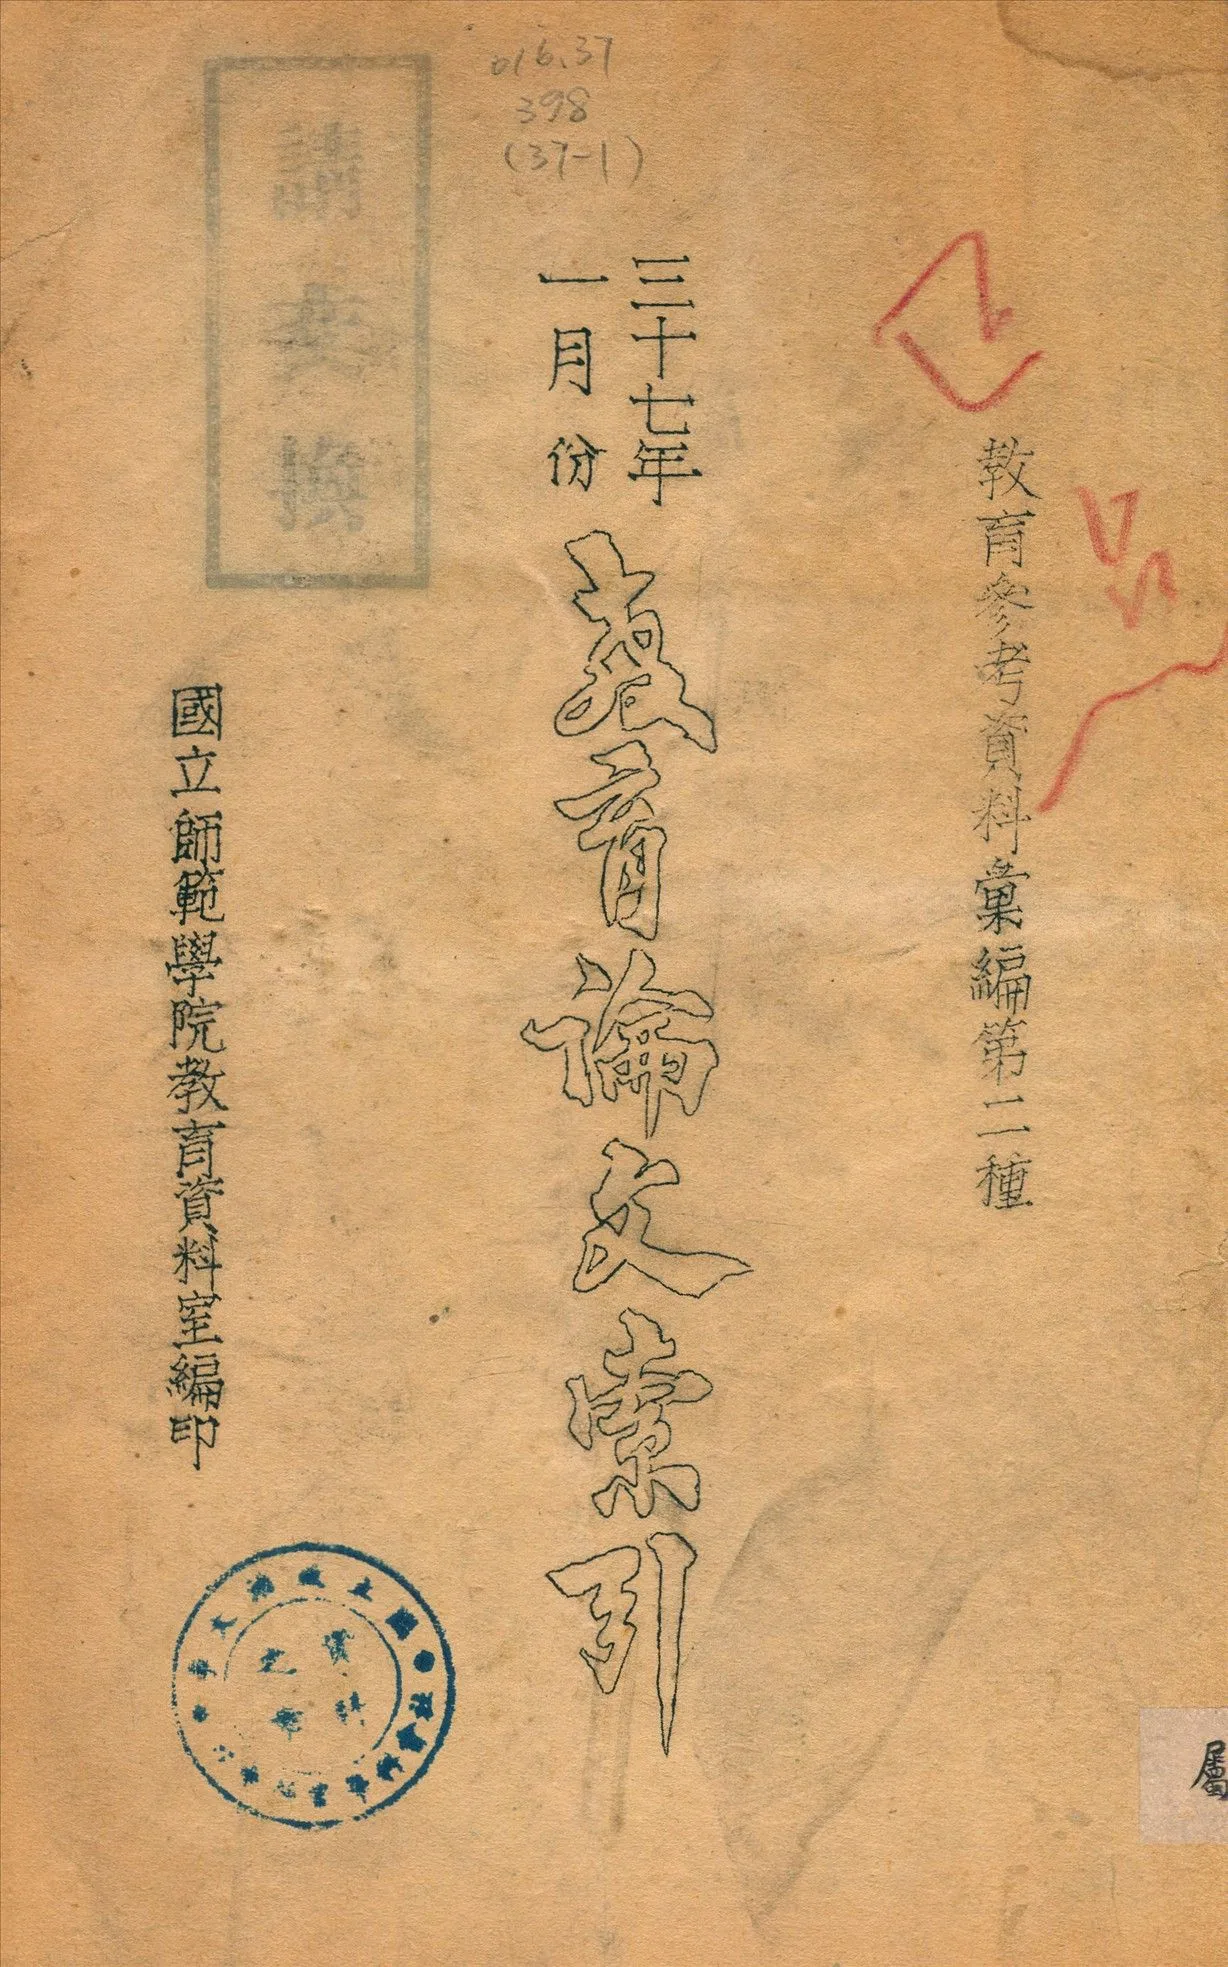 016.37
398
(37-1)
教育參考資料彙編第二種
三十七年
一月份
教育論文索引
國立師範學院教育資料室編印
請交換
資料
之章
屬